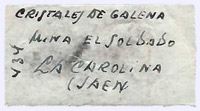 CRISTALES DE GALENA
MINA EL SOLDADO
LA CAROLINA
(JAEN
434